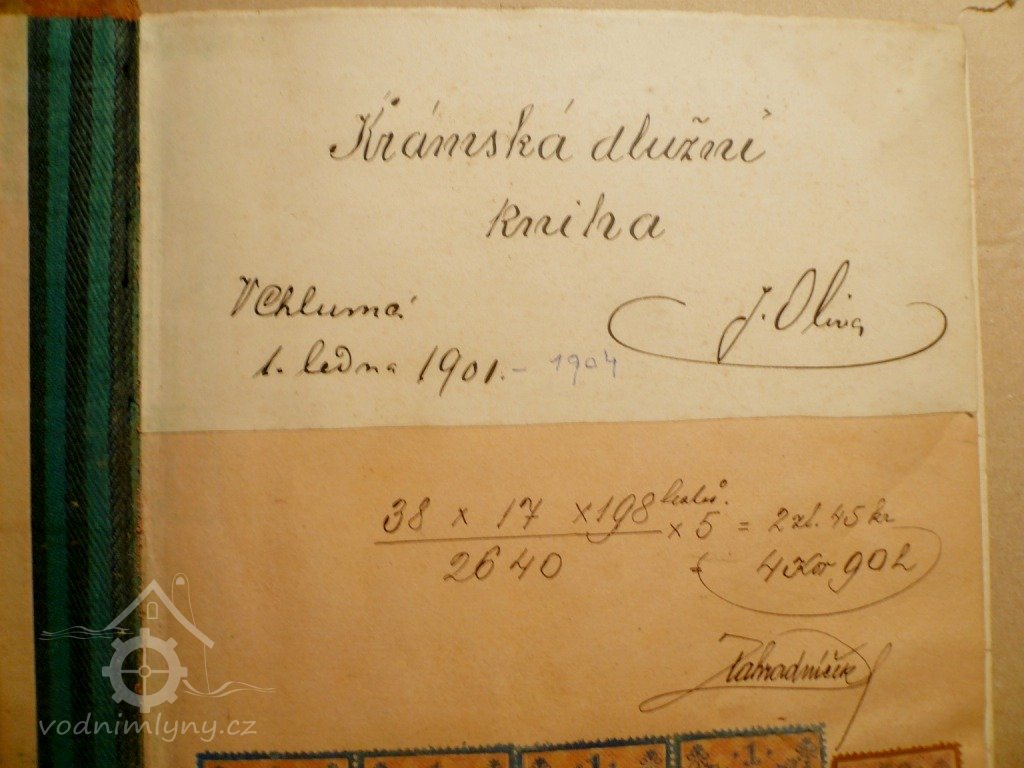 Krámská dlužní
kniha
V Chlumci
J. Oliva
1. ledna 1901. – 1904
38 x 17 x 198 kolků. x 5 = 2 zl. 45 kr
2640
= 4 Kor 90 h
Zahradníček
vodnimlyny.cz
1
1
1